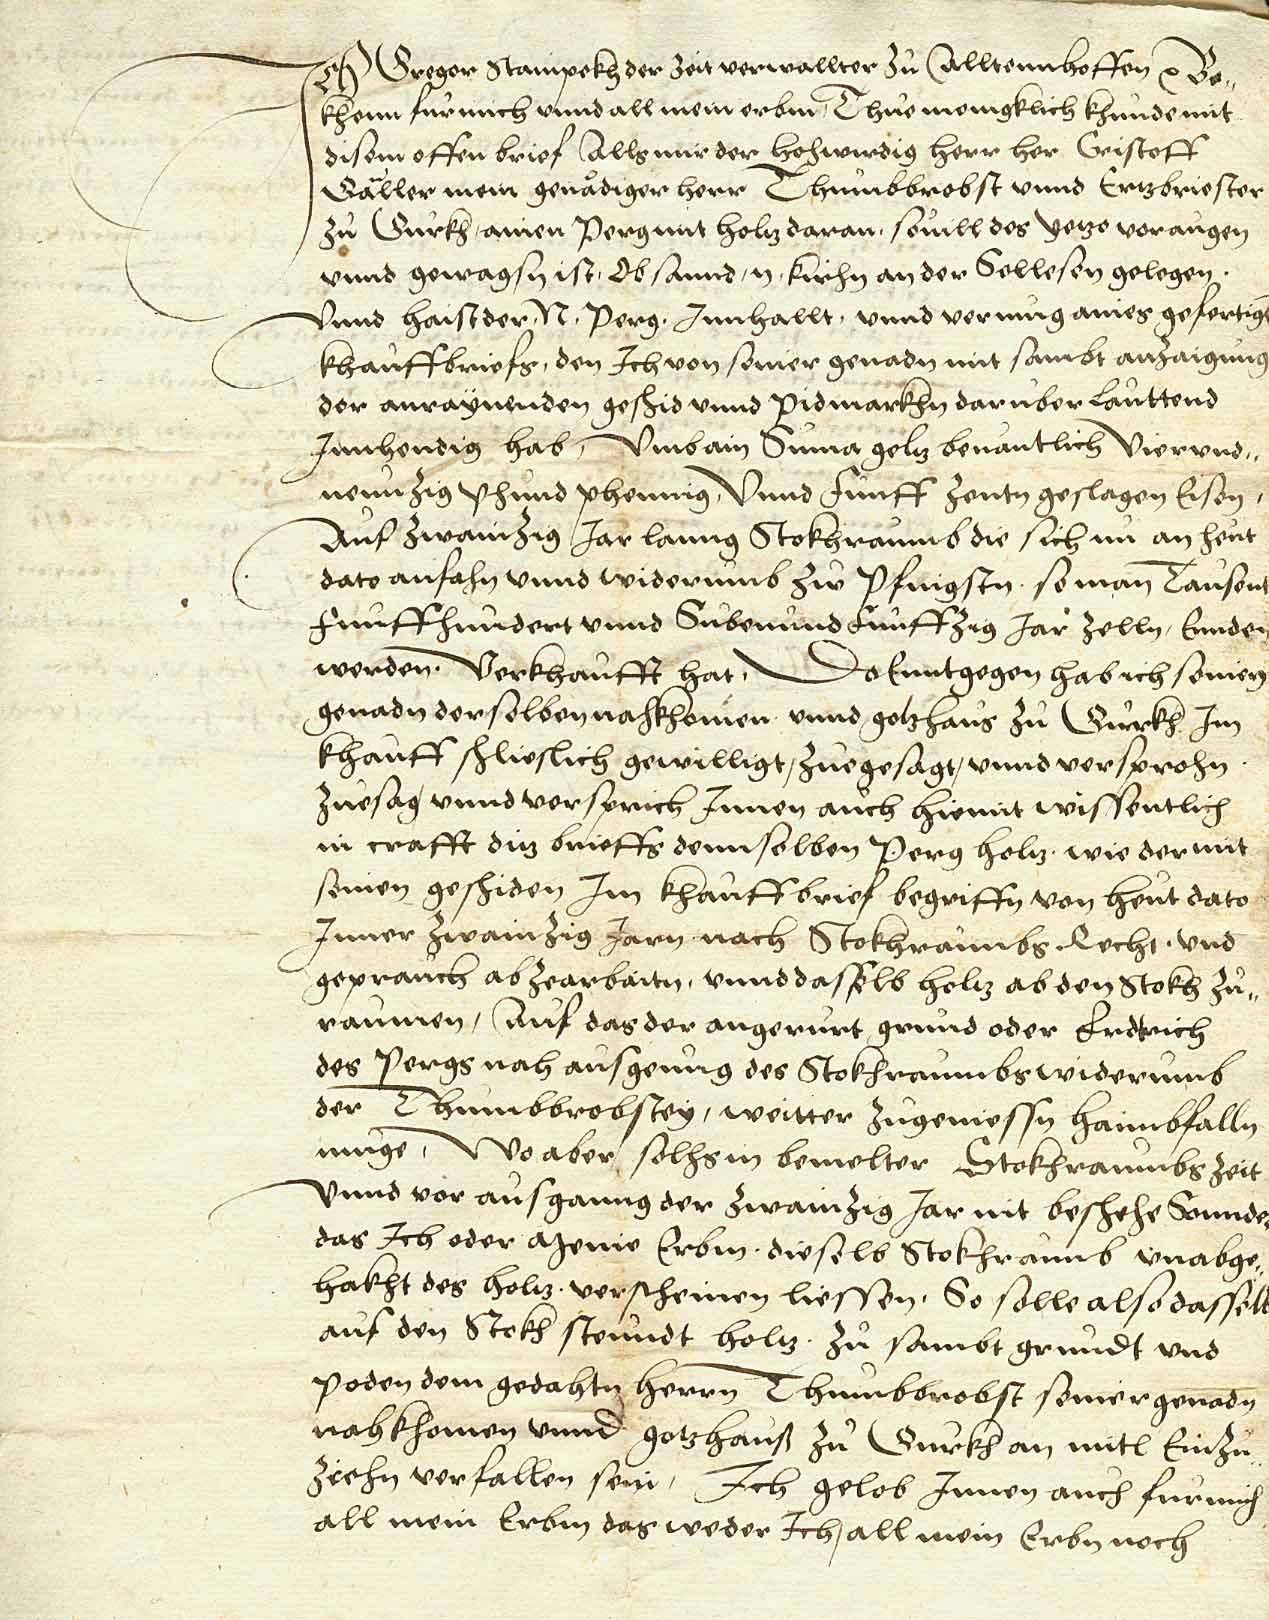 Ich Gregor Stainpekh der Zeit verwallter zu Alltennhoffen Be-
khenn fur mich vnnd all mein erbm, Thue menigklich khunde mit
disem offen brief Alls mir der hohwirdig herr her Cristoff
Galler mein genadiger herr Thumbbrobst vnnd Ertzbriester
zu Gurkh, ainen Perg mit holtz daran, souill des yetzo voraugen
vnnd gewagsn ist, Ob sannd, n, kirchn an der Sellesen gelegen.
Vnnd haist der, N, Perg, Innhallt, vnnd vermug aines gefertigt
khauffbriefs, den Ich von seiner genadn mit sambt anzaigung
der anraynenden geshid vnnd Pidmarkhn daruber lauttend
Innhendig hab, Vmb ain Suma geltz benantlich Viervnd-
neunzig Phund phennig, Vnnd Funff Zentn geslagen Eisen,
Auf Zwainzig Jar lanng Stokhraumb die sich nu an heut
dato anfahn vnnd widerumb zw Pfingstn, so man Tausent
Funffhundert vnnd Subenundfunffzig Jar zelln, Ennden
werden, Verkhaufft hat, Da Enntgegen hab ich seinen
genadn derselben nahkhomen vnnd gotzhaus zu Gurkh Im
khauff shlieslich gewilligt, zuegesagt, vnnd versprohn
zuesag vnnd versprich Innen auch hiemit wissentlich
in crafft ditz brieffs dennselben Perg holtz, wie der mit
seinen geshiden Im khauffbrief begriffn von heut dato
Inner Zwainzig Jarn nach Stokhraumbs Recht, vnd
geprauch abzearbaitn, vnnd dasselb holtz ab den Stokh zu-
raumen, Auf das der angerurt grund oder Erdtrich
des Pergs nah ausgenng des Stokhraumbs widerumb
der Thumbbrobstey, weitter zugeniessn haimbfalln
muge, Wo aber solhs in bemelter Stokhraumbs Zeit
Vnnd vor ausganng der Zwainzig Jar nit beshehe Sonnder
das Ich oder meine Erbm, dieselb Stokhraumb vnabge-
hakht des holtz, verscheinen liessen, So solle also dasselb
auf den Stokh steundt holtz, zu sambt grundt vnd
poden dem gedahtn herrn Thumbbrobst seiner genadn
nahkhomen vnnd gotzhauß zu Gurkh an mitl Einzu-
ziehn verfallen sein, Ich gelob Innen auch fur mich
all mein Erbm das weder Ich, all mein Erbn noch